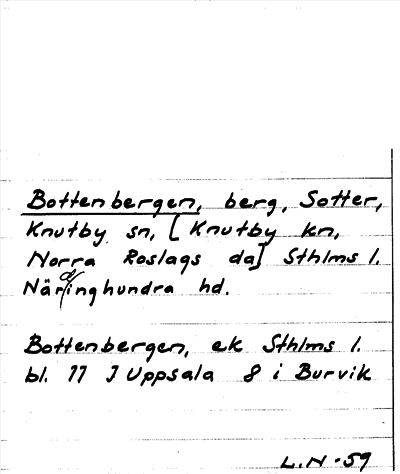 Bottenbergen, berg, Sotter,
Knutby sn, [Knutby kn,
Norra Roslags da] Sthlms l.
Närdinghundra hd.
Bottenbergen, ek Sthlms l.
bl. 77 J Uppsala 8 i Burvik
L.N-59